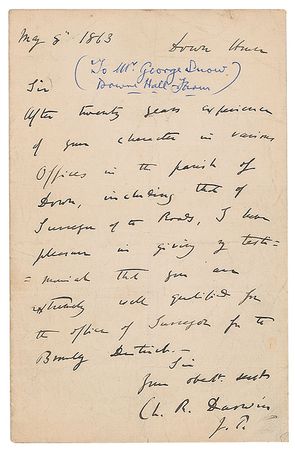 May 8th 1863 Down House
(To Mr. George Snow.
Downe Hall-Farm)
Sir
After twenty years experience
of your character in various
Offices in the parish of
Down, including that of
Surveyor of the Roads, I have
pleasure in giving my testi-
=monial that you are
extremely well qualified for
the office of Surveyor for the
Bromley District.—
Sir
Your obedt. servt
Ch. R. Darwin
J.P.